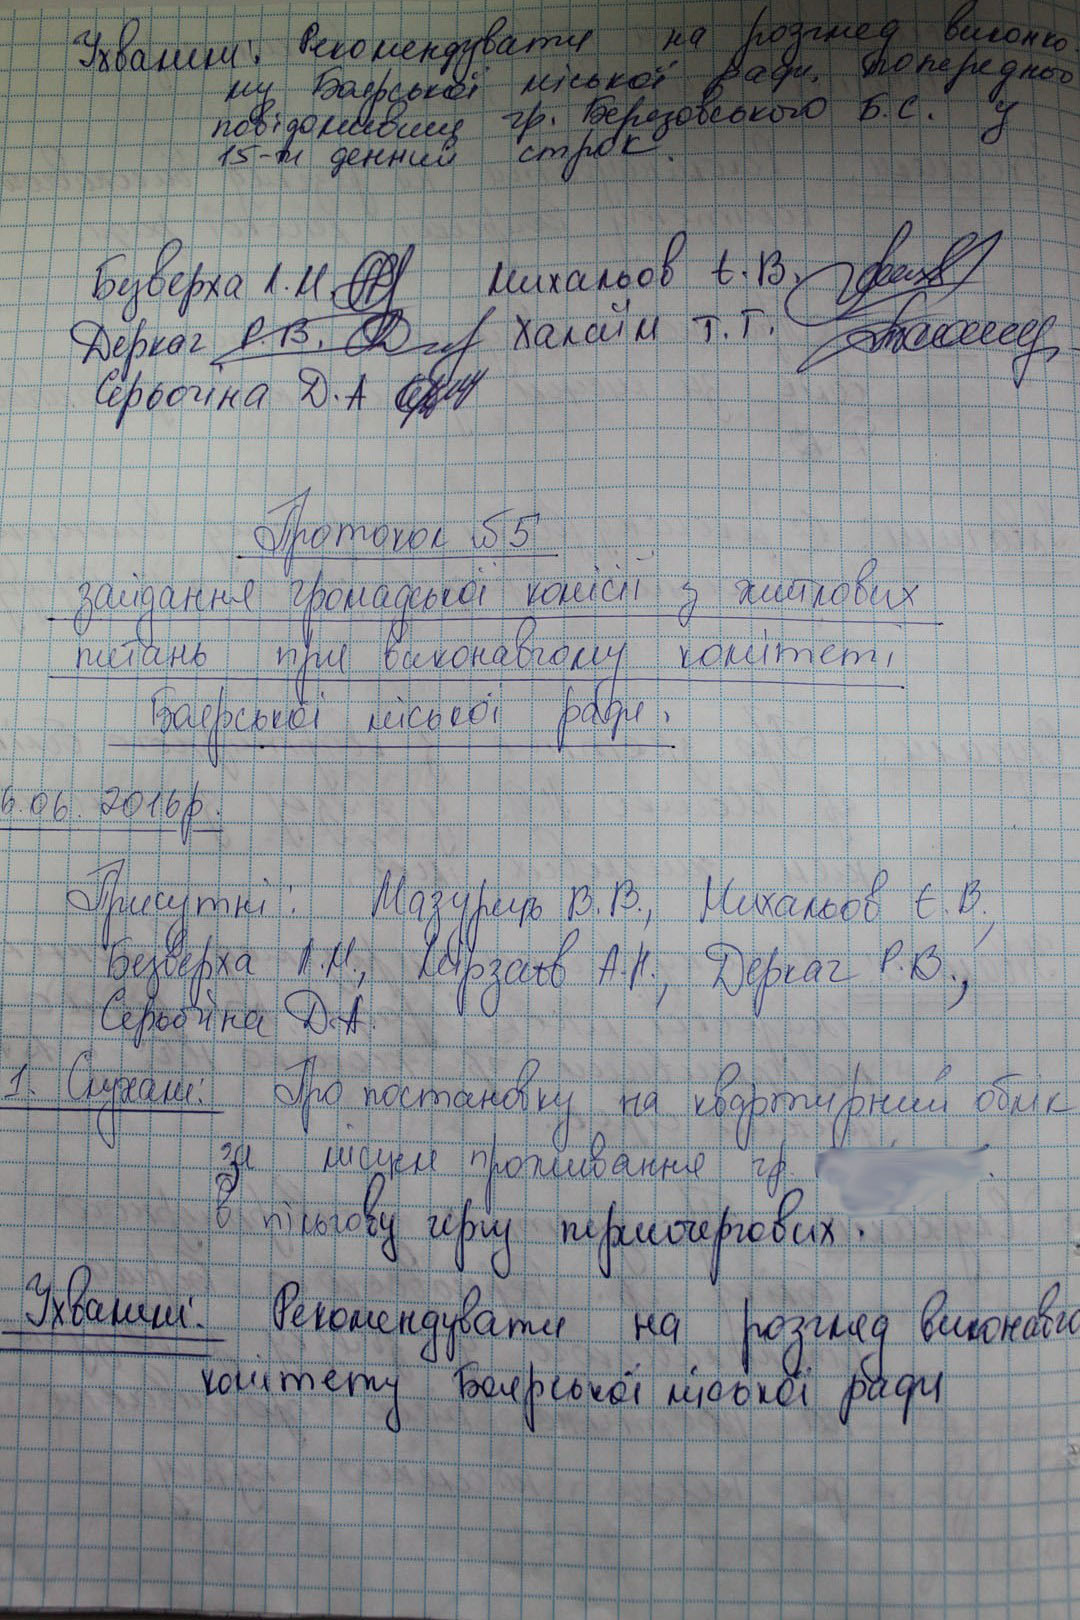 Ухвалили: Рекомендувати на розгляд виконко-
му Боярської міської ради, попередньо
повідомивши гр. Березовського Б.С. у
15-ти денний строк.
Безверха Л.М. Михальов Є.В.
Деркач Р.В. Халаїм Т.Г.
Серьогіна Д.А
Протокол №5
засідання громадської комісії з житлових
питань при виконавчому комітеті
Боярської міської ради.
6.06.2016р.
Присутні: Мазурець В.В., Михальов Є.В.,
Безверха Л.М., Мірзаєв А.Н., Деркач Р.В.,
Серьогіна Д.А.
1. Слухали: Про постановку на квартирний облік
за місцем проживання гр.
в пільгову чергу першочергових.
Ухвалили: Рекомендувати на розгляд виконавчо
комітету Боярської міської ради